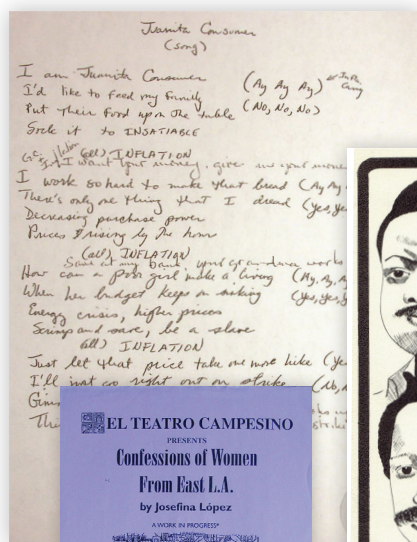 Juanita Consumer
(song)
I am Juanita Consumer (Ay Ay Ay)
I'd like to feed my family
Put their food upon the table (No, No, No)
Sock it to INSATIABLE
(all) INFLATION
I want your money, give me your money
I work so hard to make that bread (Ay
There's only one thing that I dread (Yes, Ye
Decreasing purchase power
Prices rising by the hour
(all) INFLATION
How can a poor girl make a living (Ay, Ay, A
When her budget keeps on sinking (Yes, Yes, Y
Energy crisis, higher prices
Scrimp and save, be a slave
(all) INFLATION
Just let that price take one more hike (Ye
I'll just go right out on strike (No, N
EL TEATRO CAMPESINO
PRESENTS
Confessions of Women
From East L.A.
by Josefina López
A WORK IN PROGRESS*